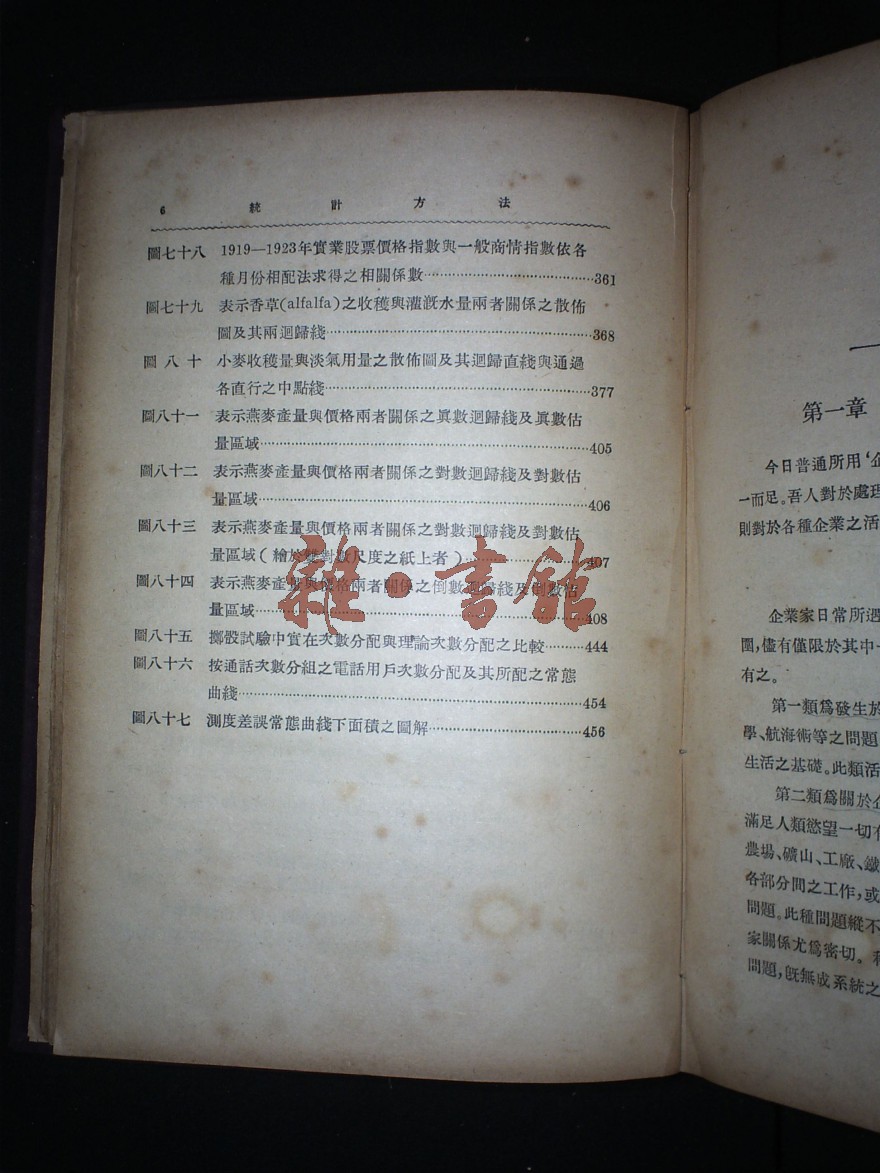 6 統計方法
圖七十八 1919—1923年實業股票價格指數與一般商情指數依各
種月份相配法求得之相關係數……361
圖七十九 表示香草(alfalfa)之收穫與灌漑水量兩者關係之散佈
圖及其兩迴歸綫……368
圖八十 小麥收穫量與淡氣用量之散佈圖及其迴歸直綫與通過
各直行之中點綫……377
圖八十一 表示燕麥產量與價格兩者關係之眞數迴歸綫及眞數估
量區域……405
圖八十二 表示燕麥產量與價格兩者關係之對數迴歸綫及對數估
量區域……406
圖八十三 表示燕麥產量與價格兩者關係之對數迴歸綫及對數估
量區域(繪於雙對數尺度之紙上者)……407
圖八十四 表示燕麥產量與價格兩者關係之倒數迴歸綫及倒數估
量區域……408
圖八十五 擲骰試驗中實在次數分配與理論次數分配之比較……444
圖八十六 按通話次數分組之電話用戶次數分配及其所配之常態
曲綫……454
圖八十七 測度差誤常態曲綫下面積之圖解……456
雜·書館
第一章
今日普通所用‘企
一而足。吾人對於處理
則對於各種企業之活
企業家日常所遇
圈,儘有僅限於其中一
有之。
第一類爲發生於
學、航海術等之問題
生活之基礎。此類活
第二類爲關於企
滿足人類慾望一切有
農場、礦山、工廠、鐵
各部分間之工作,或
問題。此種問題縱不
家關係尤爲密切。
問題,旣無成系統之